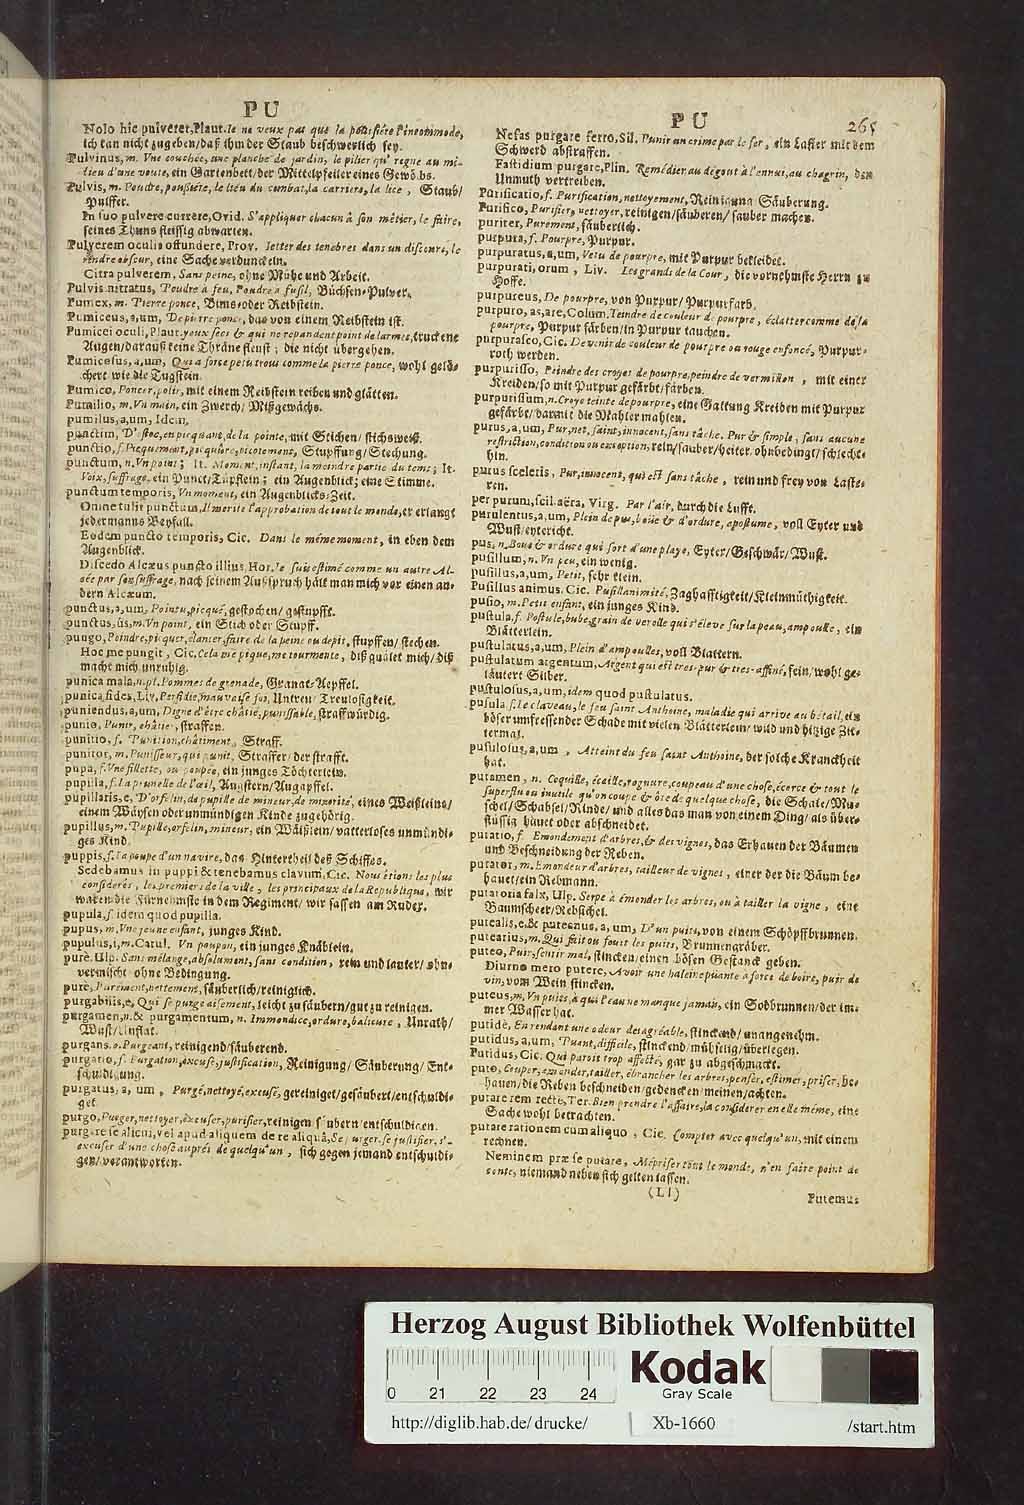 PU
Nolo hic pulveret, Plaut. Ie ne veux pas que la poussiére l'incommode,
ich kan nicht zugeben/daß ihn der Staub beschwerlich sey.
Pulvinus, m. Vne couchée, une planche de jardin, le pilier qu' regne au mi-
lieu d'une voute, ein Gartenbett/der Mittelpfeiler eines Gewölbs.
Pulvis, m. Poudre, poussiére, le lieu du combat, la carriere, la lice, Staub/
Pulffer.
In suo pulvere currere, Ovid. S'appliquer chacun à son métier, le faire,
seines Thuns fleissig abwarten.
Pulverem oculis offundere, Prov. Ietter des tenebres dans un discours, le
rendre obscur, eine Sache verdunckeln.
Citra pulverem, Sans peine, ohne Mühe und Arbeit.
Pulvis nitratus, Poudre à feu, Poudre à fusil, Büchsen-Pulver.
Pumex, m. Pierre ponce, Bims-oder Reibstein.
Pumiceus, a, um, De pierre ponce, das von einem Reibstein ist.
Pumicei oculi, Plaut. yeux secs & qui ne repandent point de larmes, truckene
Augen/darauß keine Thräne fleust; die nicht übergehen.
Pumicosus, a, um, Qui a force petits trou comme la pierre ponce, wohl gelö-
chert wie die Tugstein.
Pumico, Poncer, polir, mit einem Reibstein reiben und glätten.
Pumilio, m. Vn nain, ein Zwerch/Mißgewächs.
pumilus, a, um, Idem.
punctim, D'estoc, en picquant, de la pointe, mit Stichen/stichsweiß.
punctio, f. Picquement, picquûre, picotement, Stupffung/Stechung.
punctum, n. Vn point; It. Moment, instant, la moindre partie du tems; It.
Voix, suffrage, ein Punct/Tüpfstein; ein Augenblick; eine Stimme.
punctum temporis, Vn moment, ein Augenblicks-Zeit.
Omne tulit punctum, Il merite l'approbation de tout le monde, er erlangt
jedermanns Beyfall.
Eodem puncto temporis, Cic. Dans le même moment, in eben dem
Augenblick.
Discedo Alcæus puncto illius, Hor. Ie suis estimé comme un autre Al-
cée par son suffrage, nach seinem Außspruch hält man mich vor einen an-
dern Alcæum.
punctus, a, um, Pointu, picqué, gestochen/gestupfft.
punctus, ûs, m. Vn point, ein Stich oder Stupff.
pungo, Poindre, picquer, élancer, faire de la peine ou depit, stupffen/stechen.
Hoc me pungit, Cic. Cela me pique, me tourmente, diß quälet mich/diß
macht mich unruhig.
punica mala, n. pl. Pommes de grenade, Granat-Aepffel.
punica fides, Liv. Perfidie, mauvaise foi, Untreu/Treulosigkeit.
puniendus, a, um, Digne d'être châtié, punissable, straffwürdig.
punio, Punir, châtier, straffen.
punitio, f. Punition, châtiment, Straff.
punitor, m. Punisseur, qui punit, Straffer/der strafft.
pupa, f. Vne fillette, ou poupée, ein junges Töchterlein.
pupilla, f. La prunelle de l'œil, Augstern/Augapffel.
pupillaris, e, D'orfelin, de pupille de mineur, de minorité, eines Weißleins/
einem Wäysen oder unmündigen Kinde zugehörig.
pupillus, m. Pupille, orfelin, mineur, ein Wäißlein/vatterloses unmündi-
ges Kind.
puppis, f. La poupe d'un navire, das Hintertheil deß Schiffes.
Sedebamus in puppi & tenebamus clavum, Cic. Nous étions les plus
considerés, les premiers de la ville, les principaux de la Republique, wir
waren die Fürnemste in dem Regiment/wir sassen am Ruder.
pupula, f. idem quod pupilla.
pupus, m. Vne jeune enfant, junges Kind.
pupulus, i, m. Catul. Vn poupon, ein junges Knäblein.
purè, Ulp. Sans mélange, absolument, sans condition, rein und lauter/ohn-
vermischt ohne Bedingung.
purè, Purement, nettement, säuberlich/reiniglich.
purgabilis, e, Qui se purge aisement, leicht zu säubern/gut zu reinigen.
purgamen, n. & purgamentum, n. Immondice, ordure, balieure, Unrath/
Wust/Unflat.
purgans, o. Purgeant, reinigend/säuberend.
purgatio, f. Purgation, excuse, justification, Reinigung/Säuberung/Ent-
schuldigung.
purgatus, a, um, Purgé, nettoyé, excusé, gereiniget/gesäubert/entschuldi-
get.
purgo, Purger, nettoyer, excuser, purifier, reinigen/säubern/entschuldigen.
purgare se alicui, vel apud aliquem de re aliquâ, Se purger, se justifier, s'-
excuser d'une chose auprés de quelqu'un, sich gegen jemand entschuldi-
gen/verantworten.
PU
265
Nefas purgare ferro, Sil. Punir un crime par le fer, ein Laster mit dem
Schwerd abstraffen.
Fastidium purgare, Plin. Remédier au dégout à l'ennui, au chagrin, den
Unmuth vertreiben.
Purificatio, f. Purification, nettoyement, Reinigung Säuberung.
Purifico, Purifier, nettoyer, reinigen/säuberen/sauber machen.
puriter, Purement, säuberlich.
purpura, f. Pourpre, Purpur.
purpuratus, a, um, Vetu de pourpre, mit Purpur bekleidet.
purpurati, orum, Liv. Les grands de la Cour, die vornehmste Herrn zu
Hoffe.
purpureus, De pourpre, von Purpur/Purpurfarb.
purpuro, as, are, Colum. Teindre de couleur de pourpre, éclatter comme de la
pourpre, Purpur färben/in Purpur tauchen.
purpurasco, Cic. Devenir de couleur de pourpre ou rouge enfoncé, Purpur-
roth werden.
purpurisso, Peindre des croyes de pourpre, peindre de vermillon, mit einer
Kreiden/so mit Purpur gefärbt/färben.
purpurissum, n. Croye teinte de pourpre, eine Gattung Kreiden mit Purpur
gefärbt/darmit die Mahler mahlen.
purus, a, um, Pur, net, saint, innocent, sans tâche. Pur & simple, sans aucune
restriction, condition ou exception, rein/sauber/heiter, ohnbedingt/schlecht-
hin.
purus sceleris, Pur, innocent, qui est sans tâche, rein und frey von Laste-
ren.
per purum, scil. aëra, Virg. Par l'air, durch die Lufft.
purulentus, a, um, Plein de pus, boüe & d'ordure, apostume, voll Eyter und
Wust/eytericht.
pus, n. Boue & ordure qui sort d'une playe, Eyter/Geschwär/Wust.
pusillum, n. Vn peu, ein wenig.
pusillus, a, um, Petit, sehr klein.
Pusillus animus, Cic. Pusillanimité, Zaghafftigkeit/Kleinmüthigkeit.
pusio, m. Petit enfant, ein junges Kind.
pustula, f. Postule, bube, grain de verolle qui s'éleve sur la peau, ampoulle, ein
Blätterlein.
pustulatus, a, um, Plein d'ampoulles, voll Blattern.
pustulatum argentum, Argent qui est tres-pur & tres-affiné, fein/wohl ge-
läutert Silber.
pustulosus, a, um, idem quod pustulatus.
pusula, f. Le claveau, le feu saint Anthoine, maladie qui arrive au betail, ein
böser umfressender Schade mit vielen Blätterlein/wild und hitzige Zit-
termal.
pusulosus, a, um, Atteint du feu saint Anthoine, der solche Kranckheit
hat.
putamen, n. Coquille, écaille, rognure, coupeau d'une chose, écorce & tout le
superflu ou inutile qu'on coupe & ôte de quelque chose, die Schale/Mu-
schel/Schabsel/Rinde/und alles das man von einem Ding/als über-
flüssig hauet oder abschneidet.
putatio, f. Emondement d'arbres, & des vignes, das Erhauen der Bäumen
und Beschneidung der Reben.
putator, m. Emondeur d'arbres, tailleur de vignes, einer der die Bäum be-
hauet/ein Rebmann.
putatoria falx, Ulp. Serpe à émonder les arbres, ou à tailler la vigne, eine
Baumscheer/Rebsichel.
putealis, e, & puteanus, a, um, D'un puits, von einem Schöpffbrunnen.
putearius, m. Qui fait ou fouit les puits, Brunnengräber.
puteo, Puir, sentir mal, stincken/einen bösen Gestanck geben.
Diurno mero putere, Avoir une haleine puante à force de boire, puir de
vin, vom Wein stincken.
puteus, m. Vn puits, à qui l'eau ne manque jamais, ein Sodbrunnen/der im-
mer Wasser hat.
putidè, En rendant une odeur desagréable, stinckend/unangenehm.
putidus, a, um, Puant, difficile, stinckend/mühselig/überlegen.
Putidus, Cic. Qui paroit trop affecté, gar zu abgeschmackt.
puto, Couper, emonder, tailler, ébrancher les arbres, penser, estimer, priser, be-
hauen/die Reben beschneiden/gedencken/meinen/achten.
putare rem recte, Ter. Bien prendre l'affaire, la considerer en elle même, eine
Sache wohl betrachten.
putare rationem cum aliquo, Cic. Compter avec quelqu'un, mit einem
rechnen.
Neminem præ se putare, Mépriser tout le monde, n'en faire point de
conte, niemand neben sich gelten lassen.
(Ll)
Putemus
Herzog August Bibliothek Wolfenbüttel
0 21 22 23 24
Kodak
Gray Scale
http://diglib.hab.de/drucke/
Xb-1660
/start.htm